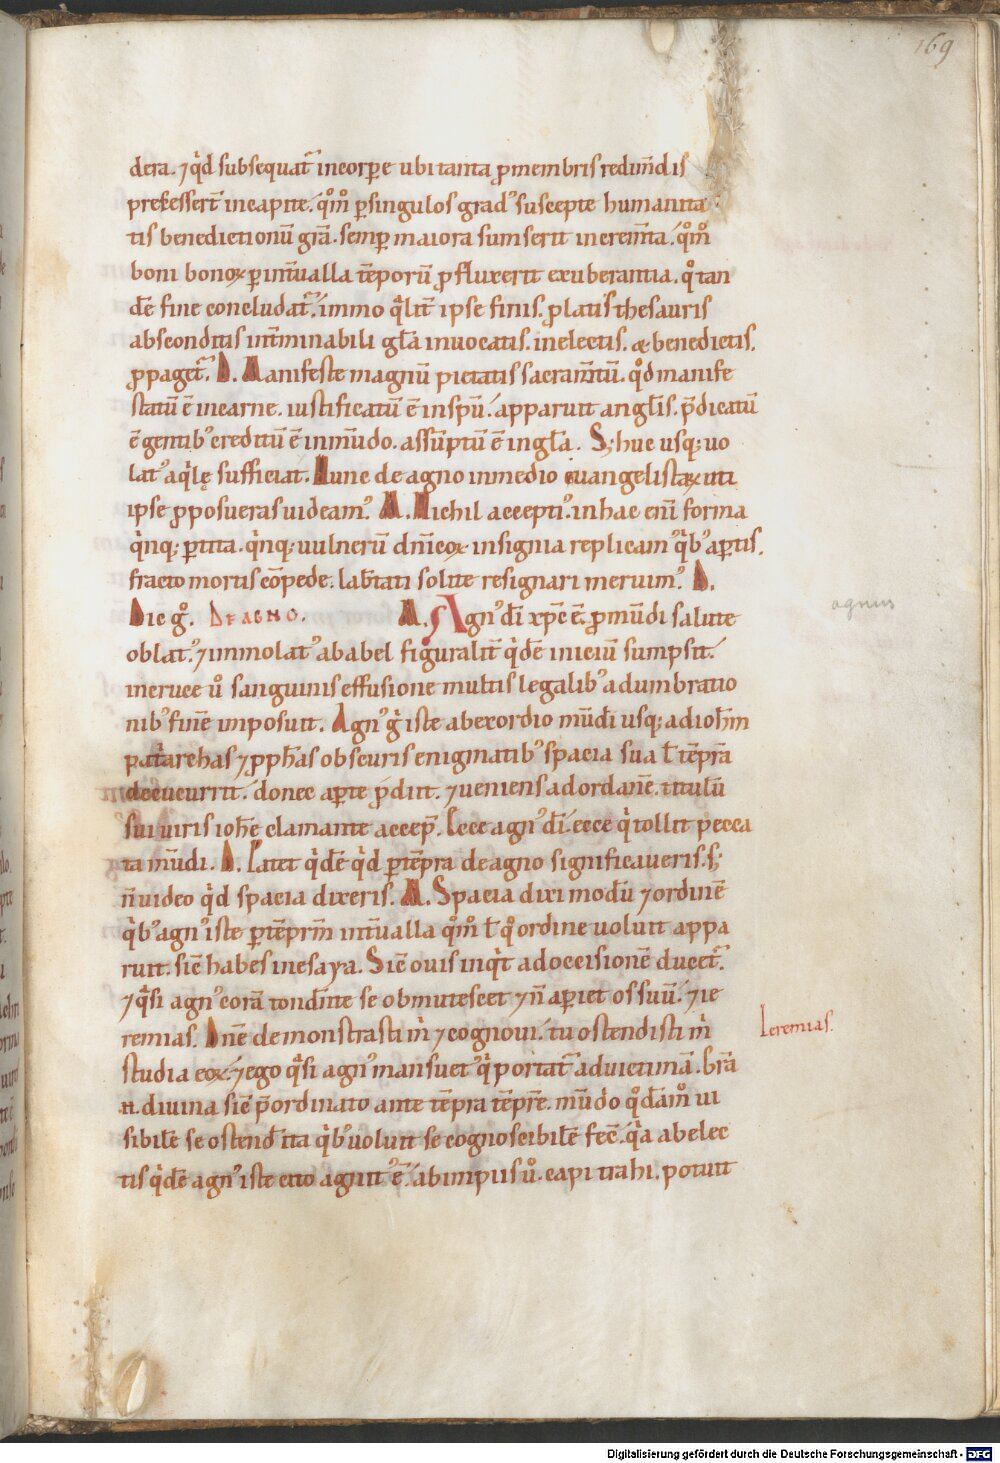 169
dera. ⁊ qͥd subsequat᷑ in corꝑe ubi tanta ꝓ membris redun̄dis
p̄cessert̄ in capite. qͦm̄ ꝑ singulos gradꝰ suscepte humanita
tis benedictionū grā. semꝑ maiora sumserit increm̄ta. qͦm̄
boni bonoꝝ ꝑ int̄ualla tēporū ꝓfluxerit exuberantia. qͦ tan
dē fine concludat᷑. immo qͣlit̄ ipse finis. ꝓlatis thesauris
absconditis int̄minabili gl̄a in uocatis. in electis. & benedictis.
ꝓpaget᷑. D. Manifeste magnū pietatis sacram̄tū. qͦd manife
statū ē in carne. iustificatū ē in spū. apparuit angl̄is. p̄dicatū
ē gentibꝰ creditū ē in mūdo. assūptū ē in gl̄a. S; huc usq; uo
latꝰ aqͥlę sufficiat. Nunc de agno in medio euangelistaꝝ uti
ipse ꝓposueras uideamꝰ. M. Nichil acceptiꝰ in hac eni᷑ forma
qͥnq; ꝑtita. qͥnq; uulnerū dn̄icoꝝ insignia replicam᷒ qͥbꝰ aꝑtis.
fracto mortis cōpede. lib̄tati solite resignari meruimꝰ. D.
Dic gͦ. DE AGNO. M. Agnꝰ dī xp̄c ē. ꝓ mūdi salute
oblatꝰ. ⁊ immolatꝰ ab abel figuralit̄ qͥdē iniciū sumpsit.
in cruce ū sanguinis effusione multis legalibꝰ adumbratio
nibꝰ finē imposuit. Agnꝰ gͥ iste ab exordio mūdi usq; ad ioh̄m
patͥarchas ⁊ ꝓph̄as obscuris enigmatibꝰ spacia sua t̄ tēpra
decucurrit. donec aꝑte ꝓdiit. ⁊ ueniens ad iordanē. titulū
sui uiris ioh̄e clamante accep̄. Ecce agnꝰ dī. ecce qͥ tollit pecca
ta mūdi. D. Patet qͥdē qͥd ꝑ tēpra de agno significaueris. s;
n̄ uideo qͥd spacia dixeris. M. Spacia dixi modū ⁊ ordinē
qͥbꝰ agnꝰ iste ꝑ tēprm̄ int̄ualla qͦm̄ t̄ qͦ ordine uoluit appa
ruit. sic̄ habes in esaya. Sic̄ ouis inqͥt ad occisionē ducet᷑.
⁊ qͣsi agnꝰ corā tondēte se obmutescet ⁊ n̄ apiet os suū. ⁊ ie
remias. Dn̄e demonstrasti m̄ ⁊ cognoui. tu ostendisti m̄
studia eoꝝ. ⁊ ego qͣsi agnꝰ mansuetꝰ qͥ portat᷑ ad uictimā. Grā
n. diuina sic̄ p̄ordinato ante tēpra tēpre. mūdo qͦdāmͦ ui
sibilē se ostend̄ ita qͥbꝰ uoluit se cognoscibilē fec̄. qͥa ab elec
tis qͥdē agnꝰ iste cito agnitꝰ ē. ab impiis ū. capi trahi. potuit
agnus
Ieremias.
Digitalisierung gefördert durch die Deutsche Forschungsgemeinschaft - DFG